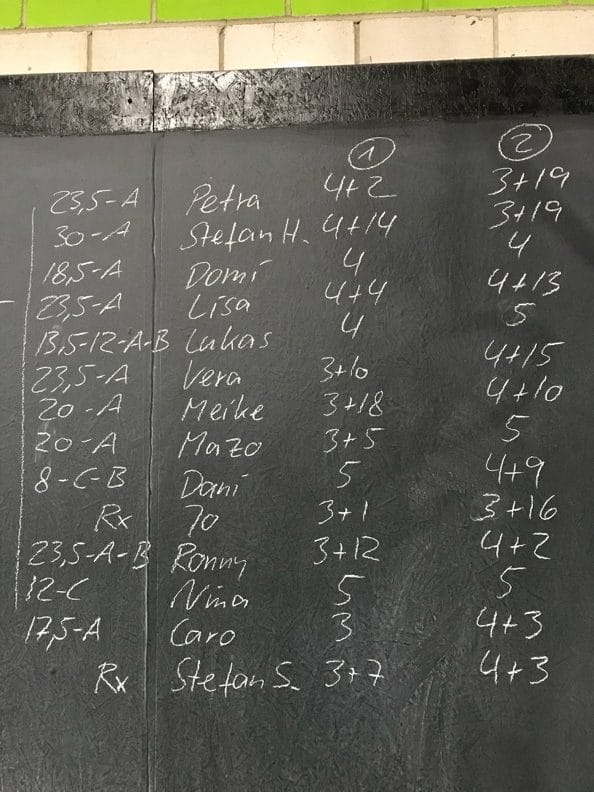 ① ②
23,5-A Petra 4+2 3+19
30-A Stefan H. 4+14 3+19
18,5-A Domi 4 4
23,5-A Lisa 4+4 4+13
13,5-12-A-B Lukas 4 5
23,5-A Vera 3+10 4+15
20-A Meike 3+18 4+10
20-A Mazo 3+5 5
8-C-B Dani 5 4+9
Rx Jo 3+1 3+16
23,5-A-B Ronny 3+12 4+2
12-C Nina 5 5
17,5-A Caro 3 4+3
Rx Stefan S. 3+7 4+3